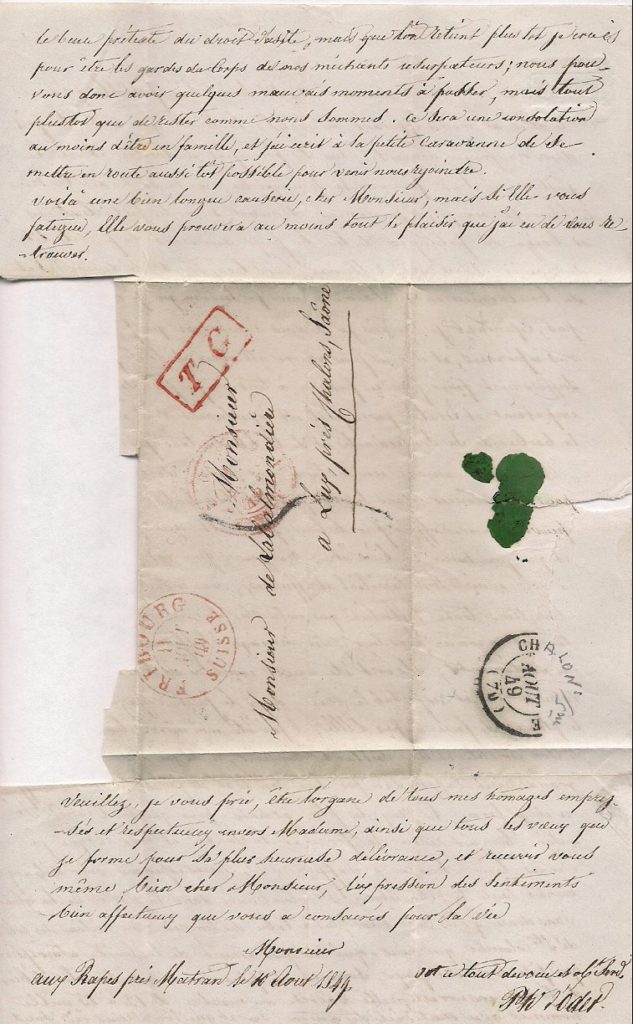 le beau prétexte du droit d'asile, mais que l'on retient plustot je crois
pour être les gardes du Corps de nos méchants usurpateurs; nous pou-
vons donc avoir quelques mauvais moments à passer, mais tout
plustot que de rester comme nous sommes. ce sera une consolation
au moins d'être en famille, et j'ai écrit à la petite caravanne de se
mettre en route aussi tôt possible pour venir nous rejoindre.
voilà une bien longue causerie, cher Monsieur, mais si Elle vous
fatigue, Elle vous prouvera au moins tout le plaisir que j'ai eu de vous re-
trouver.
T G
Monsieur
Monsieur de Labalmondière
a Lux, près Chalons, Saône
FRIBOURG SUISSE
11 AOUT 49
CHALON
AOUT 49
(70)
Veuillez, je vous prie, être l'organe de tous mes homages empres-
sés et respectueux envers Madame, ainsi que tous les vœux que
je forme pour sa plus heureuse délivrance, et recevoir vous
même bien cher Monsieur, l'expression des sentiments
bien affectueux que vous a consacrés pour la vie
Monsieur
aux Rapes près Matran le 10 Aout 1849
vot e tout dévoué et ob. Serv.
d'Odet.